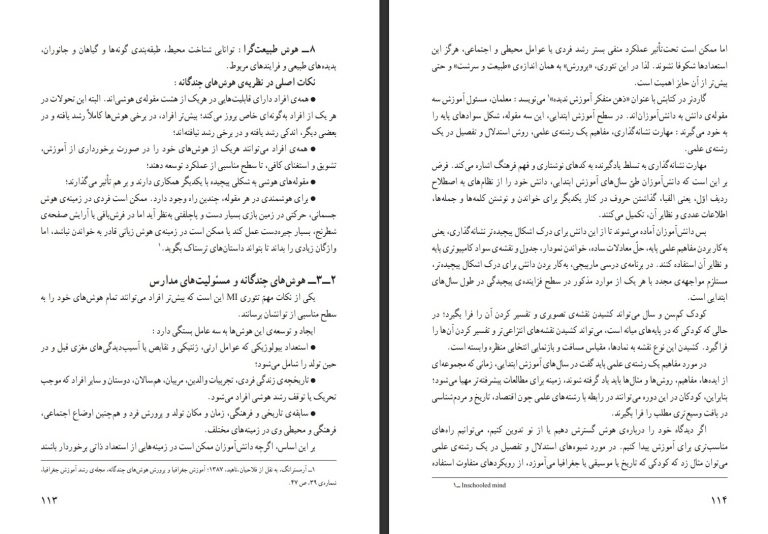 ۸ــ هوش طبیعت‌گرا : توانایی شناخت محیط، طبقه‌بندی گونه‌ها و گیاهان و جانوران،
پدیده‌های طبیعی و فرایندهای مربوط.
نکات اصلی در نظریه‌ی هوش‌های چندگانه :
● همه‌ی افراد دارای قابلیت‌هایی در هریک از هشت مقوله‌ی هوشی‌اند. البته این تحولات در
هر یک از افراد به‌گونه‌ای خاص بروز می‌کند؛ بیش‌تر افراد، در برخی هوش‌ها کاملاً رشد یافته و در
بعضی دیگر، اندکی رشد یافته و در برخی رشد نیافته‌اند؛
● همه‌ی افراد می‌توانند هریک از هوش‌های خود را در صورت برخورداری از آموزش،
تشویق و استغنای کافی، تا سطح مناسبی از عملکرد توسعه دهند؛
● مقوله‌های هوشی به شکلی پیچیده با یکدیگر همکاری دارند و بر هم تأثیر می‌گذارند؛
● برای هوشمندی در هر مقوله، چندین راه وجود دارد. ممکن است فردی در زمینه‌ی هوش
جسمانی، حرکتی در زمین بازی بسیار دست و پاچلفتی به‌نظر آید اما در فرش‌بافی یا آرایش صفحه‌ی
شطرنج، بسیار چیره‌دست عمل کند یا ممکن است در زمینه‌ی هوش زبانی قادر به خواندن نباشد، اما
واژگان زیادی را بداند تا بتواند داستان‌های ترسناک بگوید.۱
۲ــ۳ــ هوش‌های چندگانه و مسئولیت‌های مدارس
یکی از نکات مهمّ تئوری MI این است که بیش‌تر افراد می‌توانند تمام هوش‌های خود را به
سطح مناسبی از توانشان برسانند.
ایجاد و توسعه‌ی این هوش‌ها به سه عامل بستگی دارد :
● استعداد بیولوژیکی که عوامل ارثی، ژنتیکی و نقایص یا آسیب‌دیدگی‌های مغزی قبل و در
حین تولد را شامل می‌شود؛
● تاریخچه‌ی زندگی فردی، تجربیات والدین، مربیان، هم‌سالان، دوستان و سایر افراد که موجب
تحریک یا توقف رشد هوشی افراد می‌شود.
● سابقه‌ی تاریخی و فرهنگی، زمان و مکان تولد و پرورش فرد و هم‌چنین اوضاع اجتماعی،
فرهنگی و محیطی وی در زمینه‌های مختلف.
بر این اساس، اگرچه دانش‌آموزان ممکن است در زمینه‌هایی از استعداد ذاتی برخوردار باشند
۱ــ آرمسترانگ، به نقل از فلاحیان،ناهید، ۱۳۸۷؛ آموزش جغرافیا و پرورش هوش‌های چندگانه، مجله‌ی رشد آموزش جغرافیا،
شماره‌ی ۳۹، ص ۴۷.
۱۱۳
اما ممکن است تحت‌تأثیر عملکرد منفی بستر رشد فردی یا عوامل محیطی و اجتماعی، هرگز این
استعدادها شکوفا نشوند. لذا در این تئوری، «پرورش» به همان اندازه‌ی «طبیعت و سرشت» و حتی
بیش‌تر از آن حایز اهمیت است.
گاردنر در کتابش با عنوان «ذهن متفکر آموزش ندیده»۱ می‌نویسد : معلمان، مسئول آموزش سه
مقوله‌ی دانش به دانش‌آموزان‌اند. در سطح آموزش ابتدایی، این سه مقوله، شکل سوادهای پایه را
به خود می‌گیرند : مهارت نشانه‌گذاری، مفاهیم یک رشته‌ی علمی، روش استدلال و تفصیل در یک
رشته‌ی علمی.
مهارت نشانه‌گذاری به تسلط یادگیرنده به کدهای نوشتاری و فهم فرهنگ اشاره می‌کند. فرض
بر این است که دانش‌آموزان طیّ سال‌های آموزش ابتدایی، دانش خود را از نظام‌های به اصطلاح
ردیف اوّل، یعنی الفبا، گذاشتن حروف در کنار یکدیگر برای خواندن و نوشتن کلمه‌ها و جمله‌ها،
اطلاعات عددی و نظایر آن، تکمیل می‌کنند.
پس دانش‌آموزان آماده می‌شوند تا از این دانش برای درک اشکال پیچیده‌تر نشانه‌گذاری، یعنی
به‌کار بردن مفاهیم علمی پایه، حلّ معادلات ساده، خواندن نمودار، جدول و نقشه‌ی سواد کامپیوتری پایه
و نظایر آن استفاده کنند. در برنامه‌ی درسی مارپیچی، به‌کار بردن دانش برای درک اشکال پیچیده‌تر،
مستلزم مواجهه‌ی مجدد با هر یک از موارد مذکور در سطح فزاینده‌ی پیچیدگی در طول سال‌های
ابتدایی است.
کودک کم‌سن و سال می‌تواند کشیدن نقشه‌ی تصویری و تفسیر کردن آن را فرا بگیرد؛ در
حالی که کودکی که در پایه‌های میانه است، می‌تواند کشیدن نقشه‌های انتزاعی‌تر و تفسیر کردن آن‌ها را
فرا گیرد. کشیدن این نوع نقشه به نمادها، مقیاس مسافت و بازنمایی انتخابی منظره وابسته است.
در مورد مفاهیم یک رشته‌ی علمی باید گفت در سال‌های آموزش ابتدایی، زمانی که مجموعه‌ای
از ایده‌ها، مفاهیم، روش‌ها و مثال‌ها باید یاد گرفته شوند، زمینه برای مطالعات پیشرفته‌تر مهیا می‌شود؛
بنابراین، کودکان در این دوره می‌توانند در رابطه با رشته‌های علمی چون اقتصاد، تاریخ و مردم‌شناسی
در بافت وسیع‌تری مطلب را فرا بگیرند.
اگر دیدگاه خود را درباره‌ی هوش گسترش دهیم یا از نو تدوین کنیم، می‌توانیم راه‌های
مناسب‌تری برای آموزش پیدا کنیم. در مورد شیوه‌های استدلال و تفصیل در یک رشته‌ی علمی
می‌توان مثال زد که کودکی که تاریخ یا موسیقی یا جغرافیا می‌آموزد، از رویکردهای متفاوت استفاده
۱ــ Inschooled mind
۱۱۴